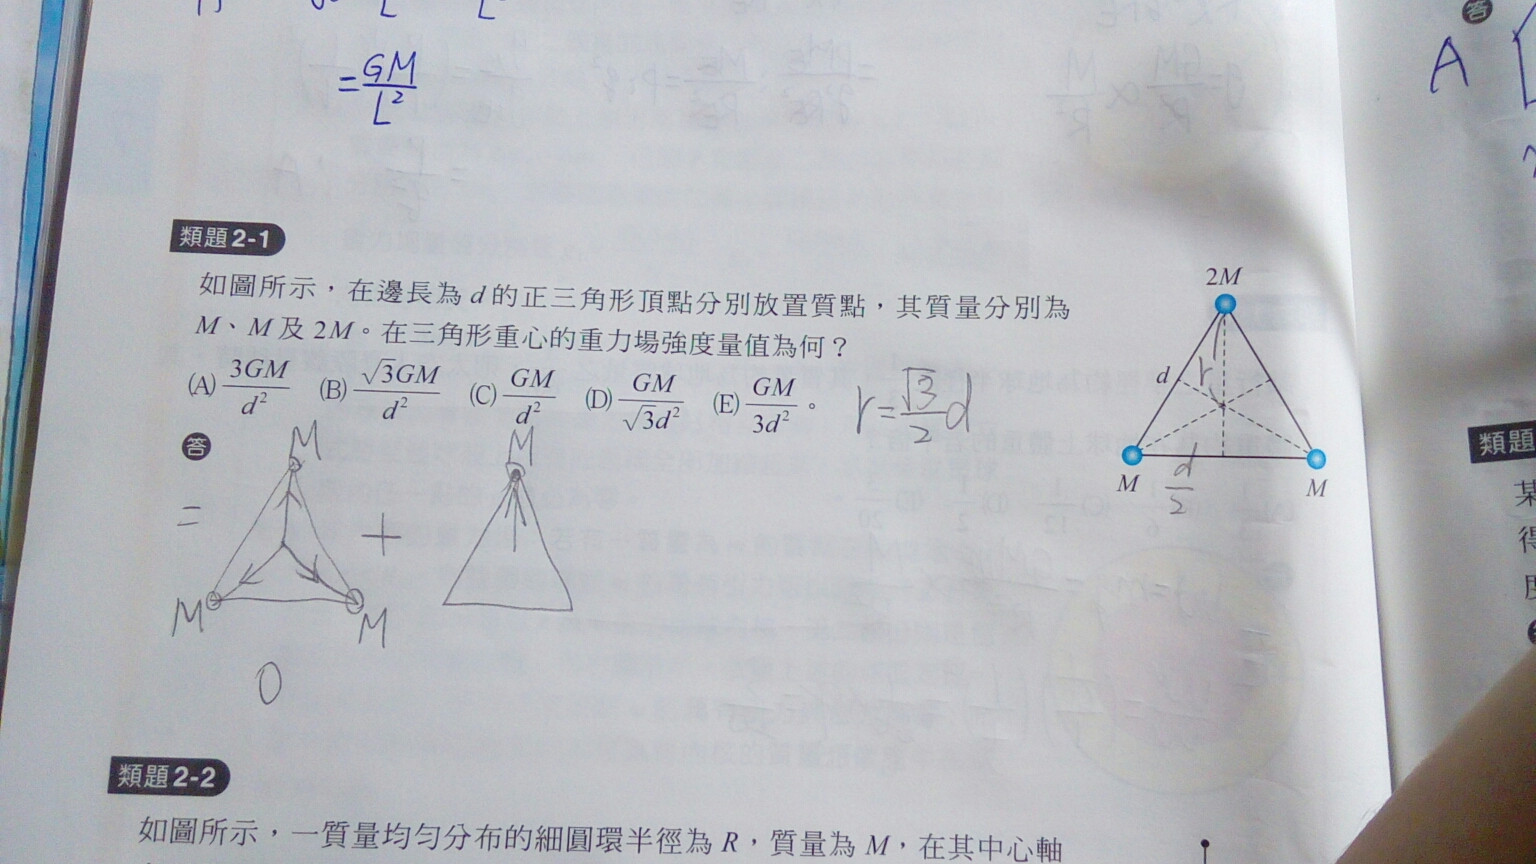 = GM/L²
A
類題2-1
如圖所示，在邊長為 d 的正三角形頂點分別放置質點，其質量分別為
M、M 及 2M。在三角形重心的重力場強度量值為何？
(A) 3GM/d² (B) √3GM/d² (C) GM/d² (D) GM/√3d² (E) GM/3d² 。
r = √3/2 d
答
2M
d
r
M
d/2
M
M
M
=
+
M
M
0
類題
某
得
類題2-2
如圖所示，一質量均勻分布的細圓環半徑為 R，質量為 M，在其中心軸